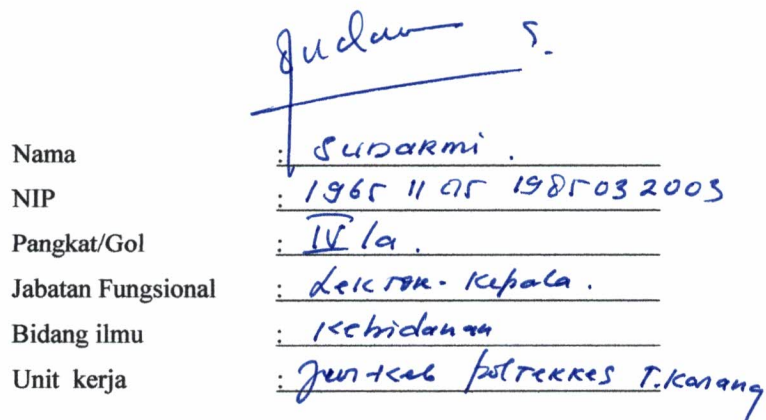 S.
Nama : Sudarmi .
NIP : 19651105 198503 2003
Pangkat/Gol : IV/a .
Jabatan Fungsional : Lektor-Kepala .
Bidang ilmu : Kebidanan
Unit kerja : Jur-Keb Poltekkes T.Karang